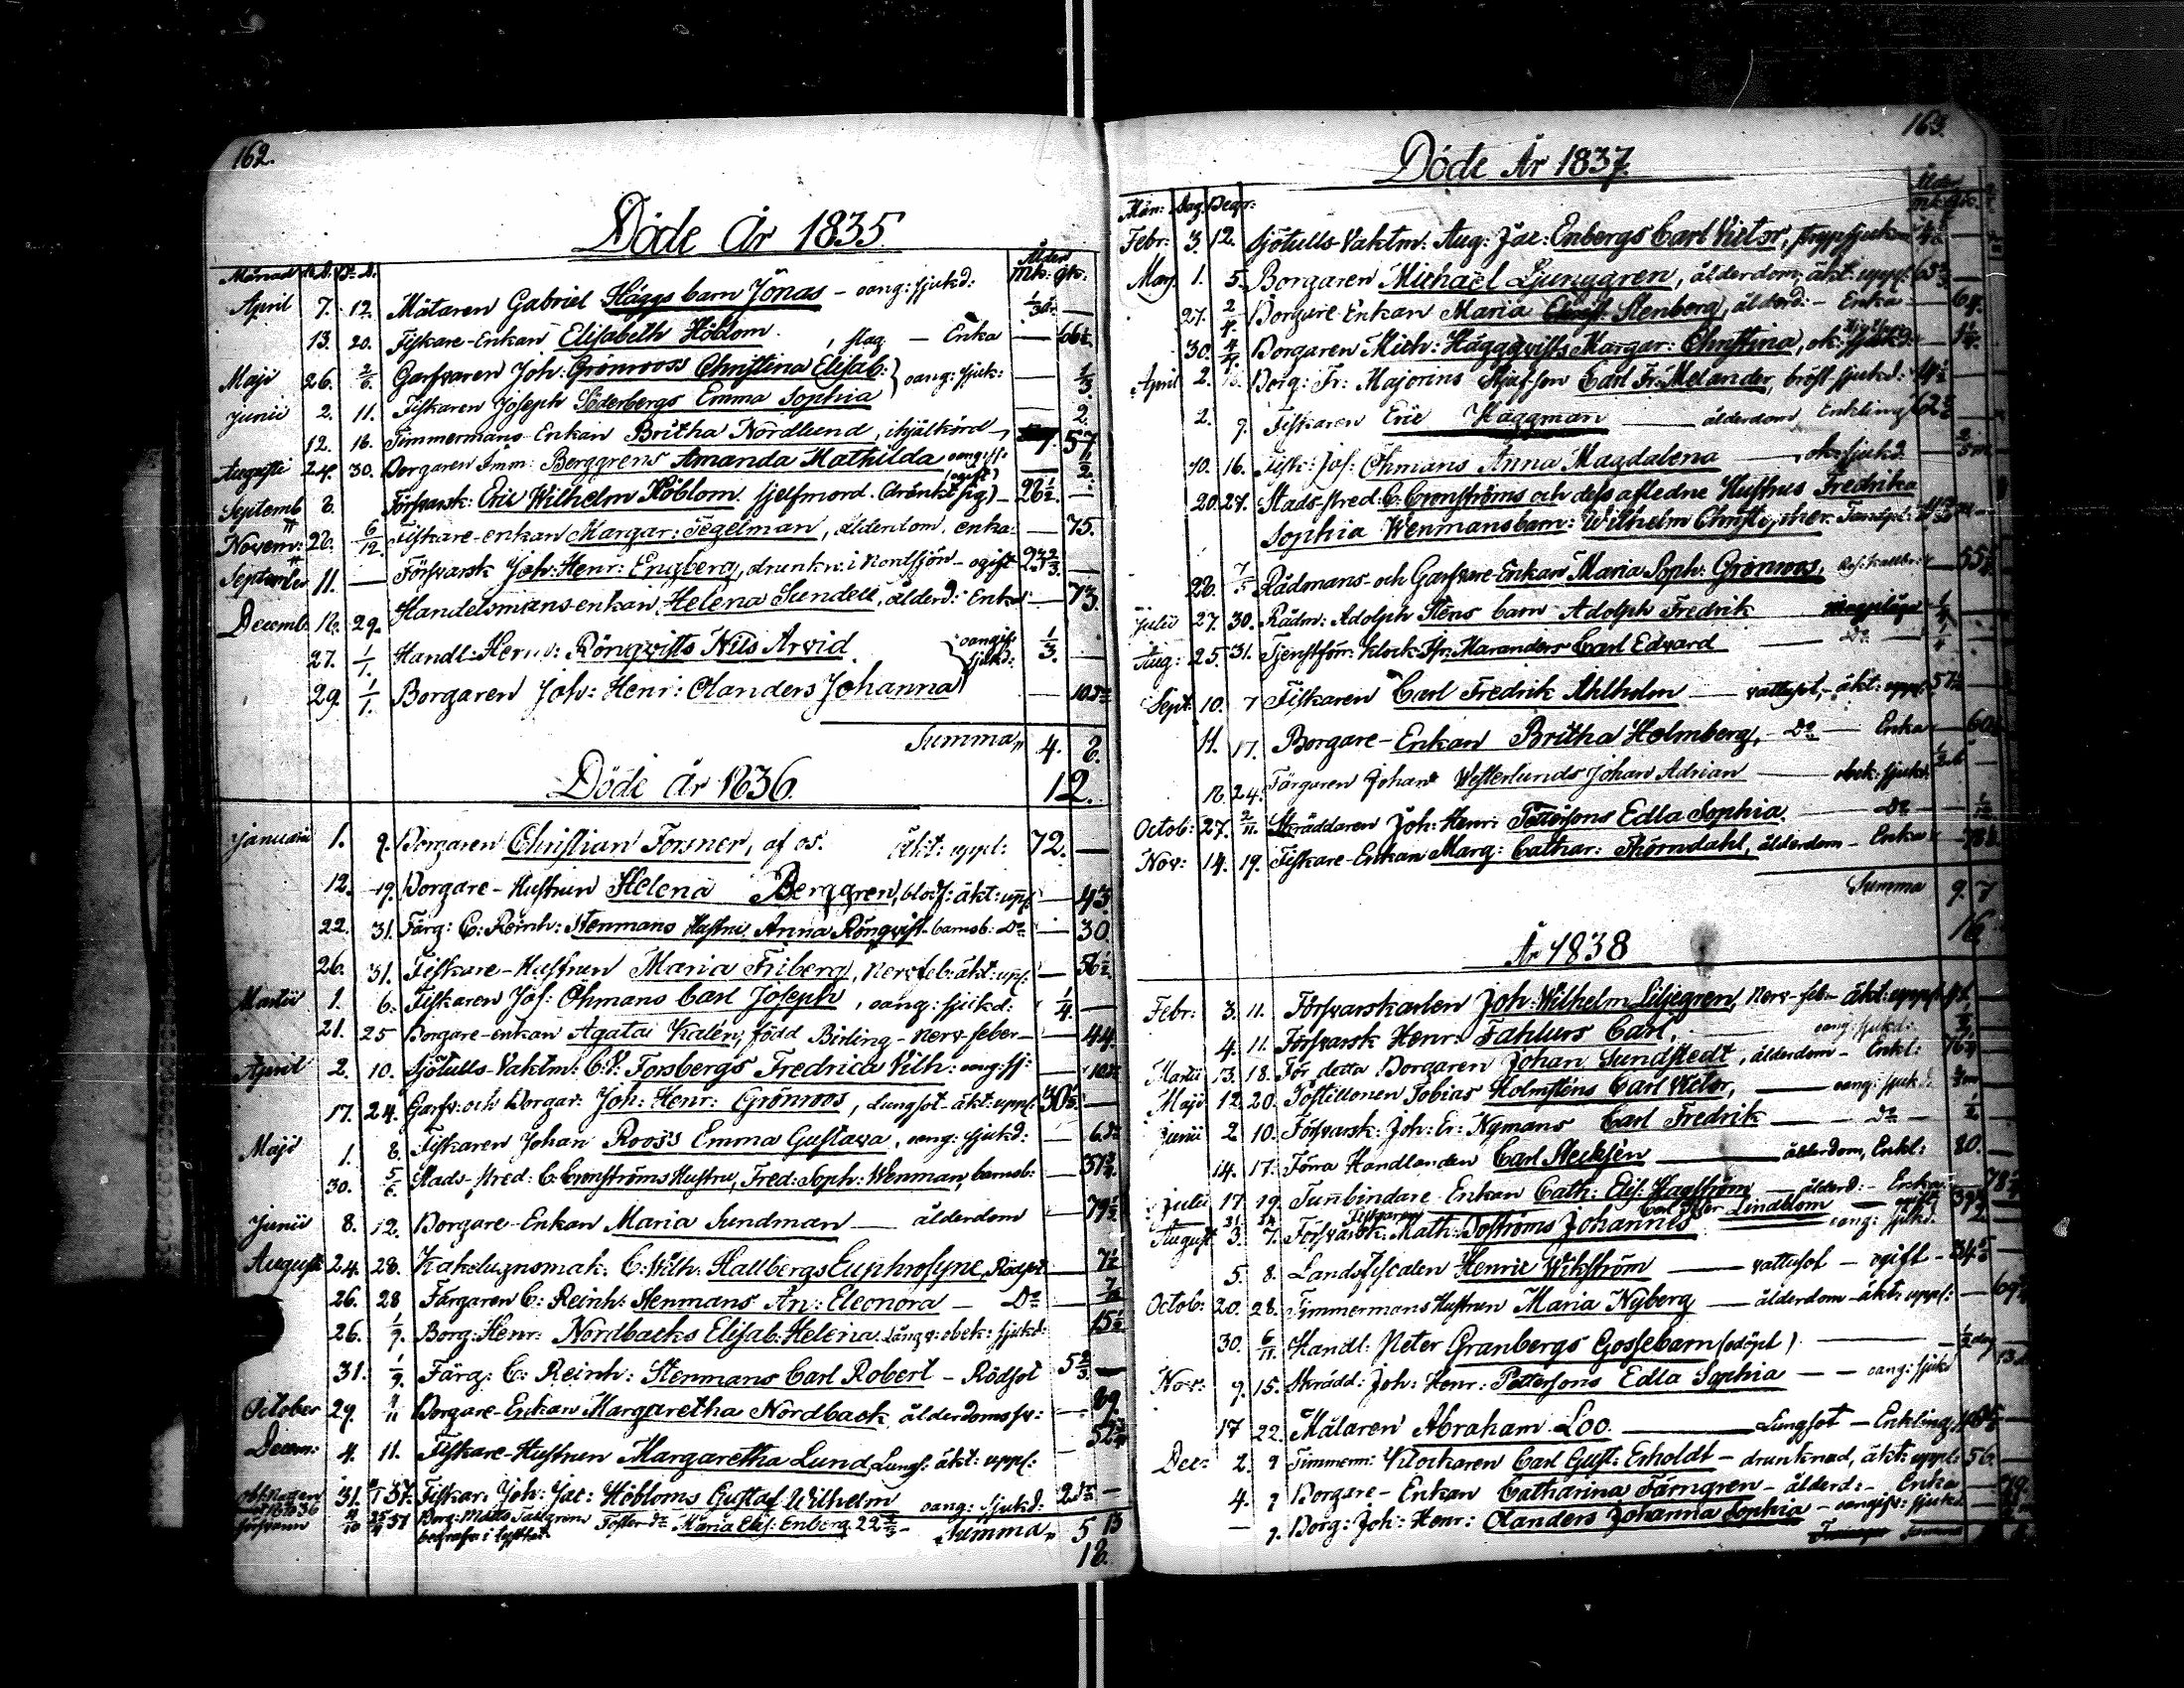 162.
Döde År 1835.
Månad D. D. Ålder Mk. Qk.
April 7. 12. Mätaren Gabriel Häggs barn Jonas - oang: sjukd:
13. 20. Fiskare-Enkan Elisabeth Höblom, slag - Enka — 66½.
Maji 26. 2/6. Garfvaren Joh: Grönroos Christina Elisab: oang: sjuk: —
Junii 2. 11. Fiskaren Joseph Söderbergs Emma Sophia — 2.
12. 16. Timmermans-Enkan Britha Nordlund, ihjälkörd — 57
Augusti 24. 30. Borgaren Imm: Berggrens Amanda Mathilda oangif:
Septemb 8. Försvarsk: Eric Wilhelm Höblom sjelfmord (dränkt sig) (ogift) — 26½. —
Novem: 26. 6/12. Fiskare-enkan Margar: Tegelman, ålderdom, enka — 75.
September 11. — Försvarsk Joh: Henr: Engberg, drunkn: i Nordsjön - ogift 23⅔. —
Decemb. 18. 29. Handelsmans-enkan Helena Sundell, ålderd: Enka — 73.
27. 1/1. Handl: Herm: Rönqvists Nils Arvid oangif: sjukd: ⅓. —
29. 1/1. Borgaren Joh: Henr: Olanders Johanna —
Summa 4. 8.
12.
Döde År 1836.
Januarii 1. 9. Borgaren Christian Forsner, af os. äkt: uppl: 72. —
12. 19. Borgare-Hustrun Helena Berggren, blods: äkt: uppl: — 43.
22. 31. Färg: C: Reinh: Stenmans Hustru Anna Rönqvist barnsb: Do — 30.
26. 31. Fiskare-Hustrun Maria Friberg, Nervfeb: äkt: upl: — 56½.
Martii 1. 6. Fiskaren Jos: Öhmans Carl Joseph, oang: sjukd: ¼. —
21. 25 Borgare-enkan Agata Kalén, född Birling - Nervfeber — 44.
April 2. 10. Sjötulls-Vaktm: C: V: Forsbergs Fredrica Vilh: oang: sj: —
17. 24. Garfv: och Borgar: Joh: Henr: Grönroos, Lungsot - äkt: uppl: —
Maji 1. 8. Fiskaren Johan Roos's Emma Gustava, oang: sjukd: —
30. 5/6. Stads-fred: C: Cronströms Hustru, Fred: Soph: Wenman, barnsb: —
Junii 8. 12. Borgare-Enkan Maria Sundman — ålderdom — 79½
August 24. 28. Kakelugnsmak: C: Wilh: Hallbergs Euphrosyne, Rödsot —
26. 28 Färgaren C: Reinh: Stenmans An: Eleonora — Do —
26. 1/9. Borg: Henr: Nordbacks Elisab: Helena Långv: obek: sjukd: 15½
31. 1/9. Färg: C: Reinh: Stenmans Carl Robert - Rödsot 5⅔ —
October 29. Borgare-Enkan Margaretha Nordback ålderdomssv: —
Decem: 4. 11. Fiskare-Hustrun Margaretha Lund Lungs: äkt: uppl:
31. 37. Fiskar: Joh: Jac: Höbloms Gustaf Wilhelm oang: sjukd: —
Maria Elis: Enberg
Summa 5 13
18.
163.
Döde År 1837.
Mån: Dag. Begr: Ålder
Febr: 3. 12. Sjötulls-Vaktm: Aug: Jac: Enbergs Carl Victor, strypsjukan —
May 1. 5. Borgaren Michaël Ljunggren, ålderdom, äkt: uppl: —
27. 2/4. Borgare-Enkan Maria Stenberg, ålderd: - Enka — 64.
30. 4/4. Borgaren Mich: Häggqvists Margar: Christina, ok: sjukd: —
April 2. Borg: Fr: Majorins Styfson Carl Fr: Melander, bröst sjukd:
2. 9. Fiskaren Eric Häggman — ålderdom, Enkling
10. 16. Fisk: Jos: Öhmans Anna Magdalena — ok: sjukd.
20. 27. Stads-fred: C: Cronströms och dess afledne Hustrus Fredrika
Sophia Wenmans barn: Wilhelm Christopher
26. 7/5 Rådmans- och Garfvare-Enkan Maria Soph: Grönroos,
Julii 27. 30. Rådm: Adolph Stens barn Adolph Fredrik
Aug: 25. 31. Tjenstförr: Klock: Fr: Maranders Carl Edvard — Do —
Sept: 10. 7 Fiskaren Carl Fredrik Ahlholm — vattusot, - äkt: uppl:
11. 17. Borgare-Enkan Britha Holmberg, - Do — Enka
18. 24. Färgaren Johan Westerlunds Johan Adrian — obek: sjukd.
Octob: 27. 2/11. Skräddaren Joh: Henr: Pettersons Edla Sophia. — Do —
Nov: 14. 19. Fiskare-Enkan Marg: Cathar: Thörndahl, ålderdom - Enka —
Summa 9. 7
16
År 1838
Febr: 3. 11. Försvarskarlen Joh: Wilhelm Liljegren, Nerv-feb: - äkt: uppl:
4. 11. Försvarsk Henr: Fahlurs Carl, oang: sjukd:
Martii 13. 18. För detta Borgaren Johan Sundstedt, ålderdom - Enkl:
Maji 12. 20. Postillonen Tobias Holmsténs Carl Victor, — oang: sjukd:
Junii 2 10. Försvarsk: Joh: Er: Nymans Carl Fredrik — Do —
14. 17. Förra Handlanden Carl Stecksén — ålderdom, Enkl: 80. —
Julii 17. 19. Tunbindare-Enkan Cath: Elis: Hagström — ålderd: - Enka
Fiskaren Carl Peter Lindblom — ogift
August 3. 7. Försvarsk: Math: Sjöströms Johannes oang: sjukd.
5. 8. Landsfiscalen Henric Wikström — vattusot - ogift - —
Octob: 20. 28. Timmermans Hustrun Maria Nyberg — ålderdom - äkt: uppl: —
30. 6/11. Handl: Peter Granbergs Gossebarn (nödöpt) — ½ dag
Nov: 9. 15. Skrädd: Joh: Henr: Pettersons Edla Sophia — - oang: sjukd
17 22. Målaren Abraham Loo. — Lungsot - Enkling,
Dec: 2. 9 Timmerm: Klockaren Carl Gust: Erholdt - drunknad, äkt: uppl: 56.
4. 9 Borgare-Enkan Catharina Färngren - ålderd: - Enka — 79.
— 9. Borg: Joh: Henr: Olanders Johanna Sophia - oangifv: sjukd
Summa